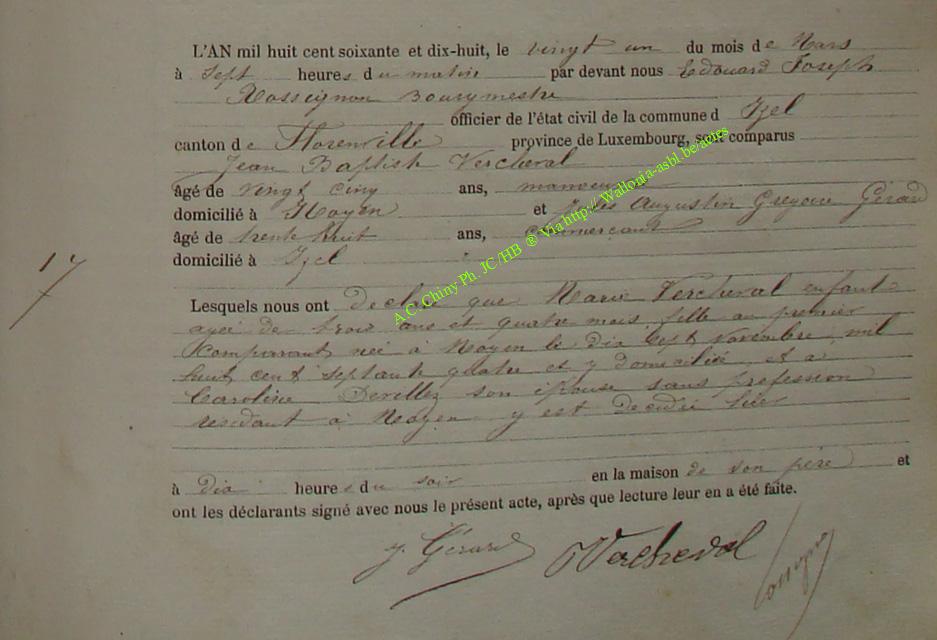 L'AN mil huit cent soixante et dix-huit, le vingt un du mois de Mars
à sept heures du matin par devant nous Edouard Joseph
Rossignon Bourgmestre
officier de l'état civil de la commune d Izel
canton de Florenville province de Luxembourg, sont comparus
Jean Baptiste Vercheval
âgé de vingt cinq ans, manoeuvre
domicilié à Moyen et Jules Augustin Gregoire Gérard
âgé de trente huit ans, commerçant
domicilié à Izel
17
Lesquels nous ont declaré que Marie Vercheval enfant
agée de trois ans et quatre mois, fille au premier
Comparant née à Moyen le dix sept Novembre mil
huit cent septante quatre et y domiciliée et a
Caroline Devillez son épouse sans profession
residant à Moyen y est decedée hier
à dix heures du soir en la maison de son père et
ont les déclarants signé avec nous le présent acte, après que lecture leur en a été faite.
J. Gérard Vercheval
A.C. Chiny Ph. JC/HB ® Via http://Wallonia-asbl.be/actes